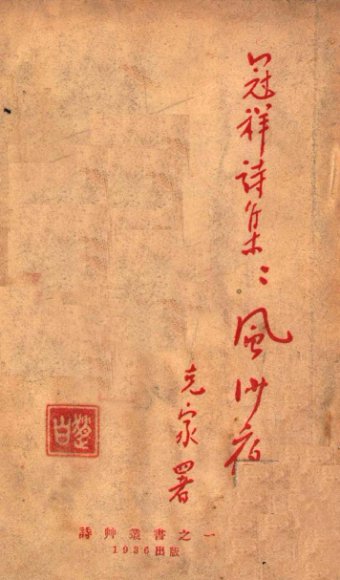 冠祥詩集：風沙
克家署
詩艸叢書之一
1936出版